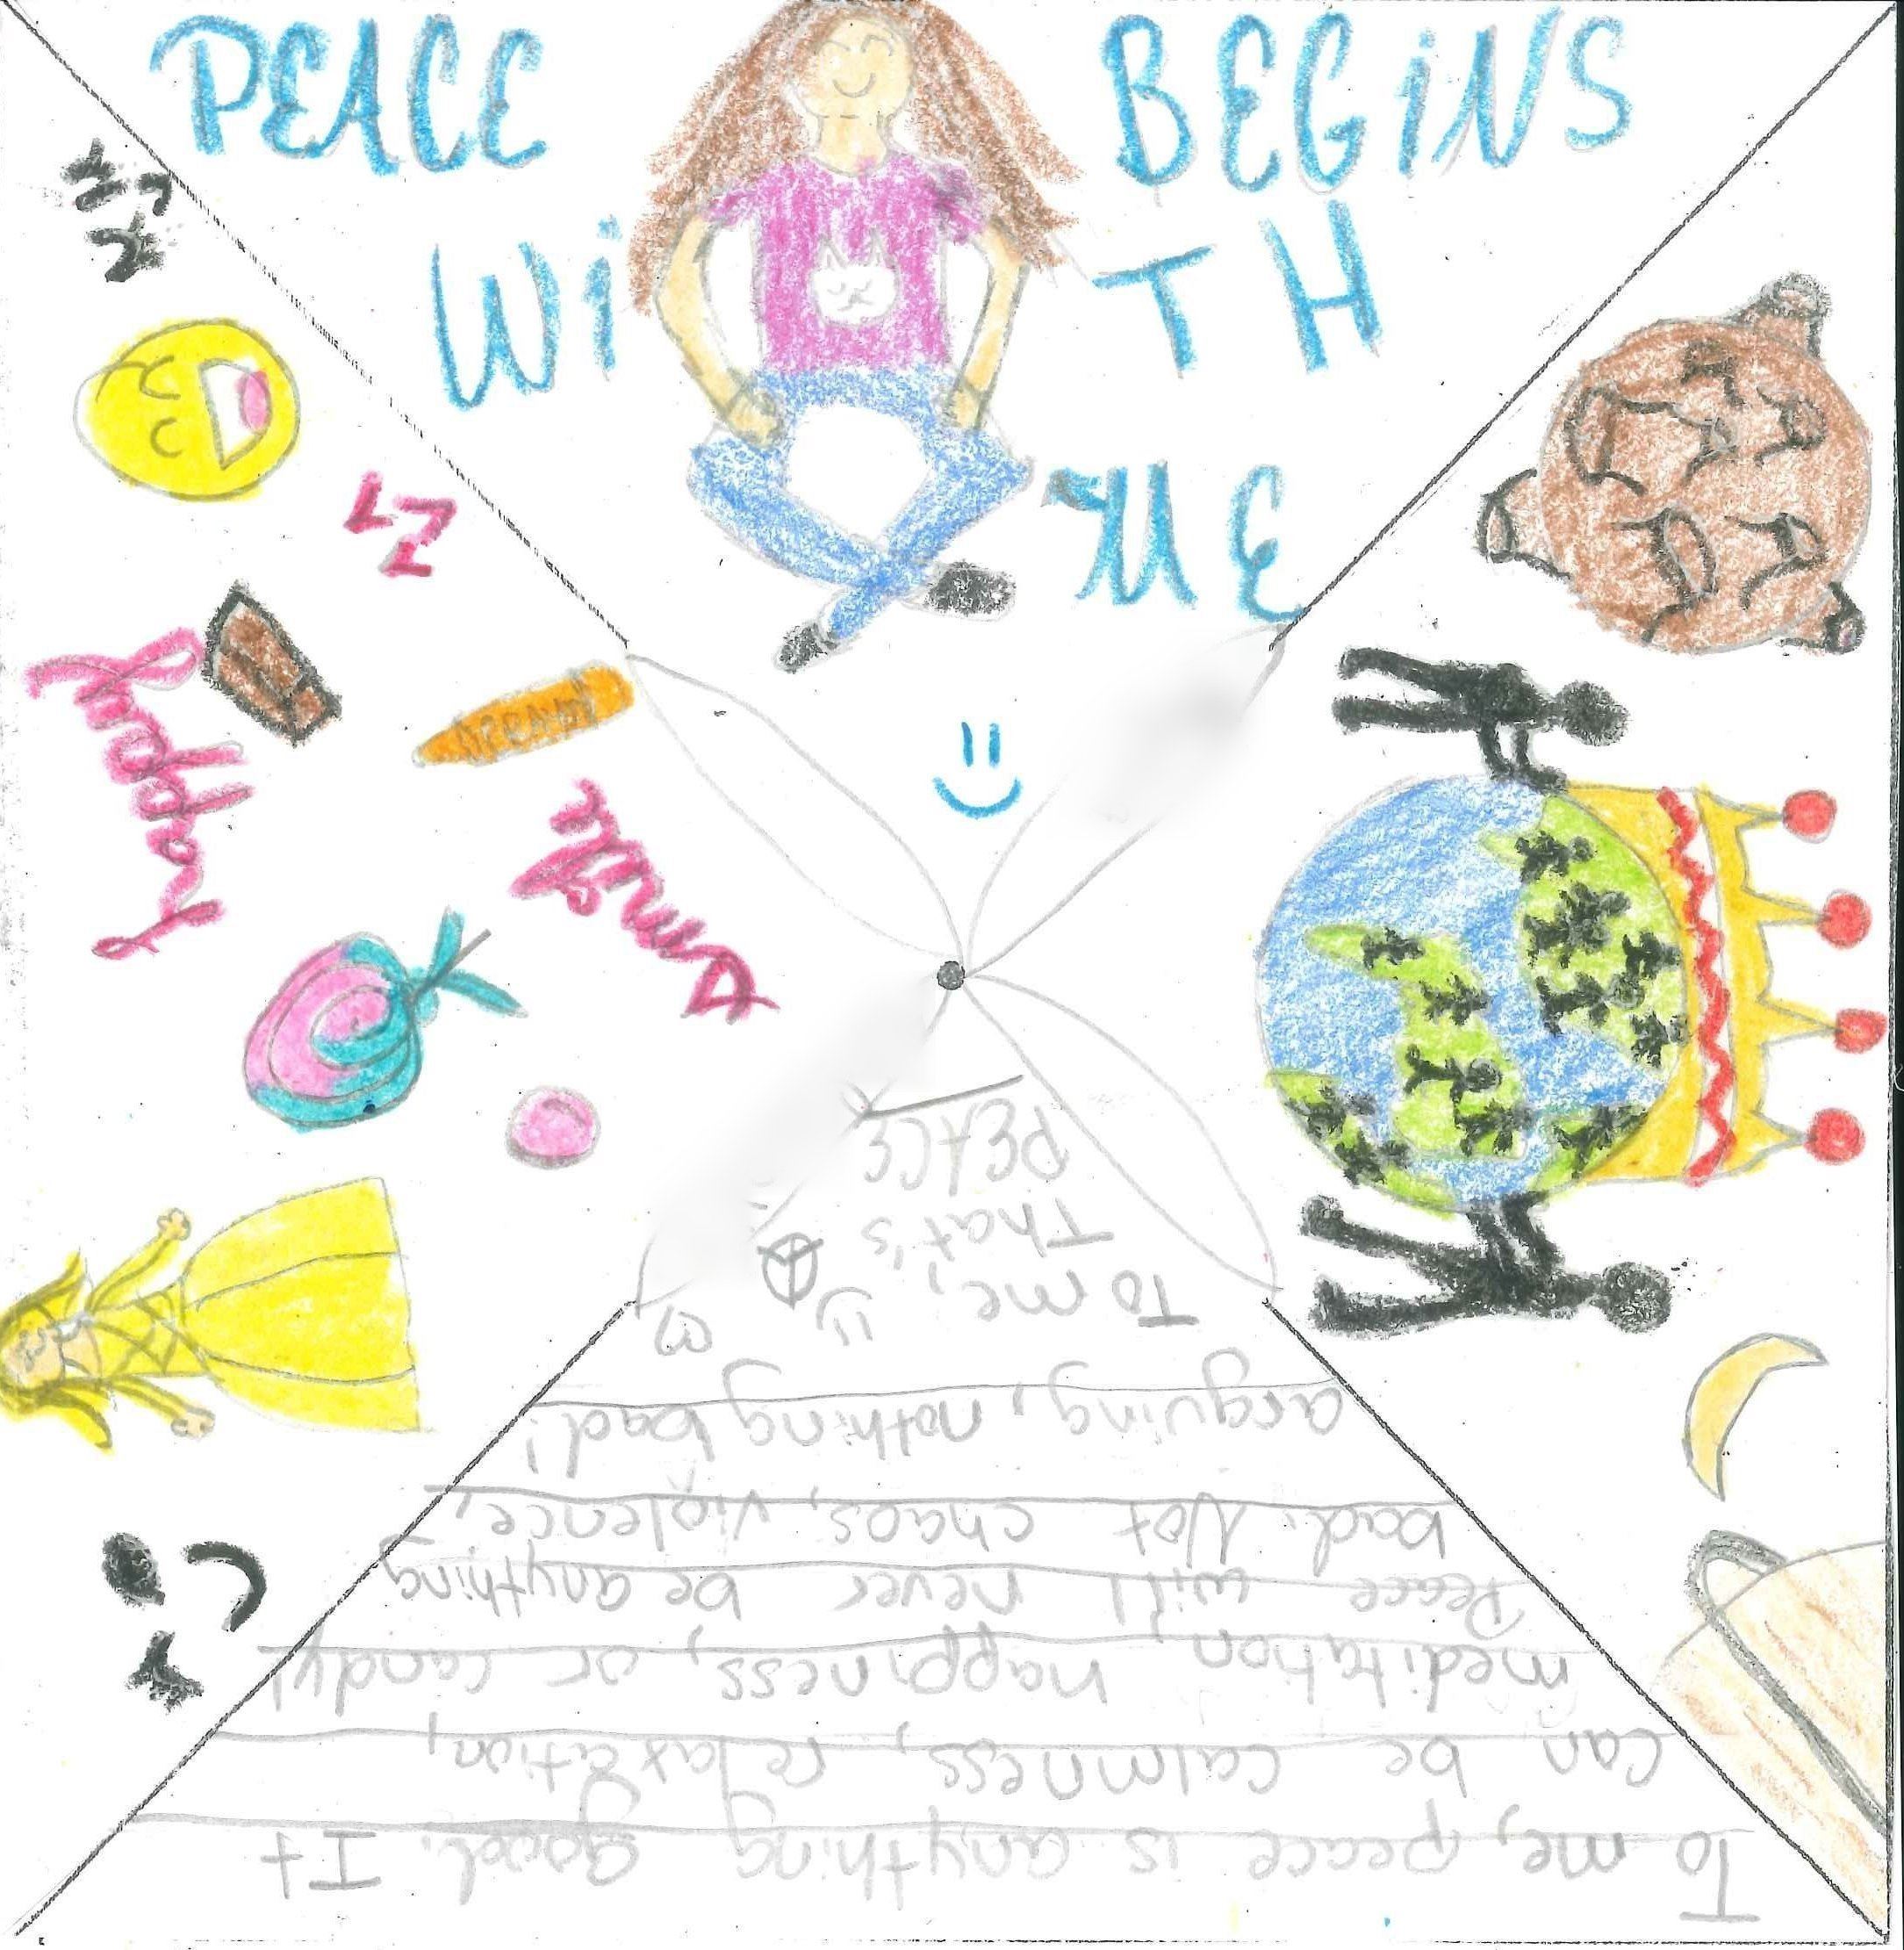 PEACE BEGiNS
WiTH
ME
To me, peace is anything good. It
can be calmness, relaxation,
meditation, happiness, or candy!
Peace will never be anything
bad. Not chaos, violence,
arguing, nothing bad!
To me,
That's
PEACE